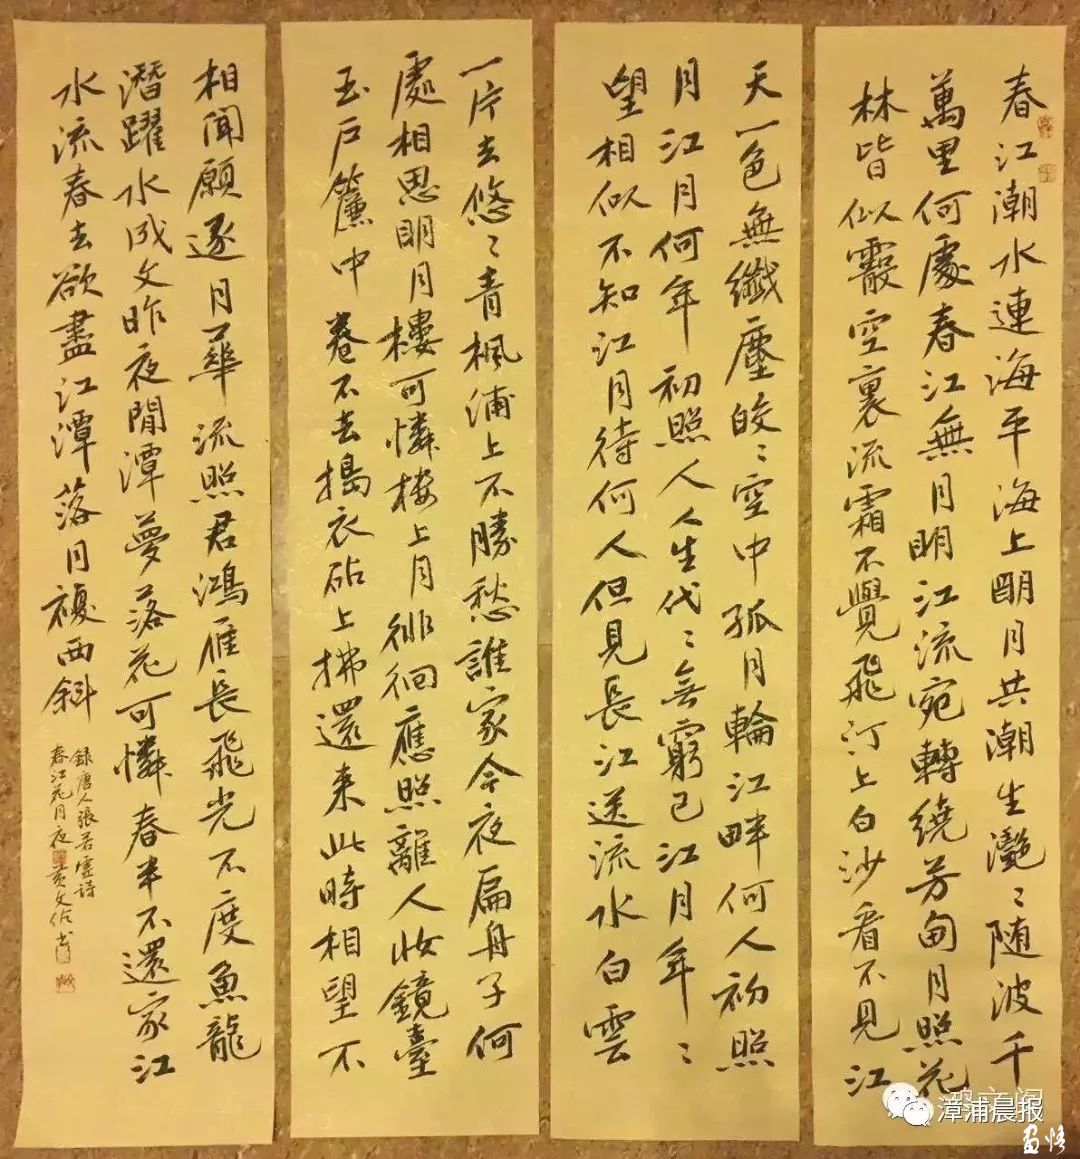 春江潮水連海平海上明月共潮生灩〻随波千
萬里何處春江無月明江流宛轉繞芳甸月照花
林皆似霰空裏流霜不覺飛汀上白沙看不見江
天一色無纖塵皎〻空中孤月輪江畔何人初照
月江月何年初照人人生代〻無窮已江月年〻
望相似不知江月待何人但見長江送流水白雲
一片去悠〻青楓浦上不勝愁誰家今夜扁舟子何
處相思明月樓可憐楼上月徘徊應照離人妝鏡臺
玉戶簾中卷不去搗衣砧上拂還来此時相望不
相聞願逐月華流照君鴻雁長飛光不度魚龍
潛躍水成文昨夜閒潭夢落花可憐春半不還家江
水流春去欲盡江潭落月複西斜
録唐人張若虛詩
春江花月夜 黄文佐书
漳浦晨报